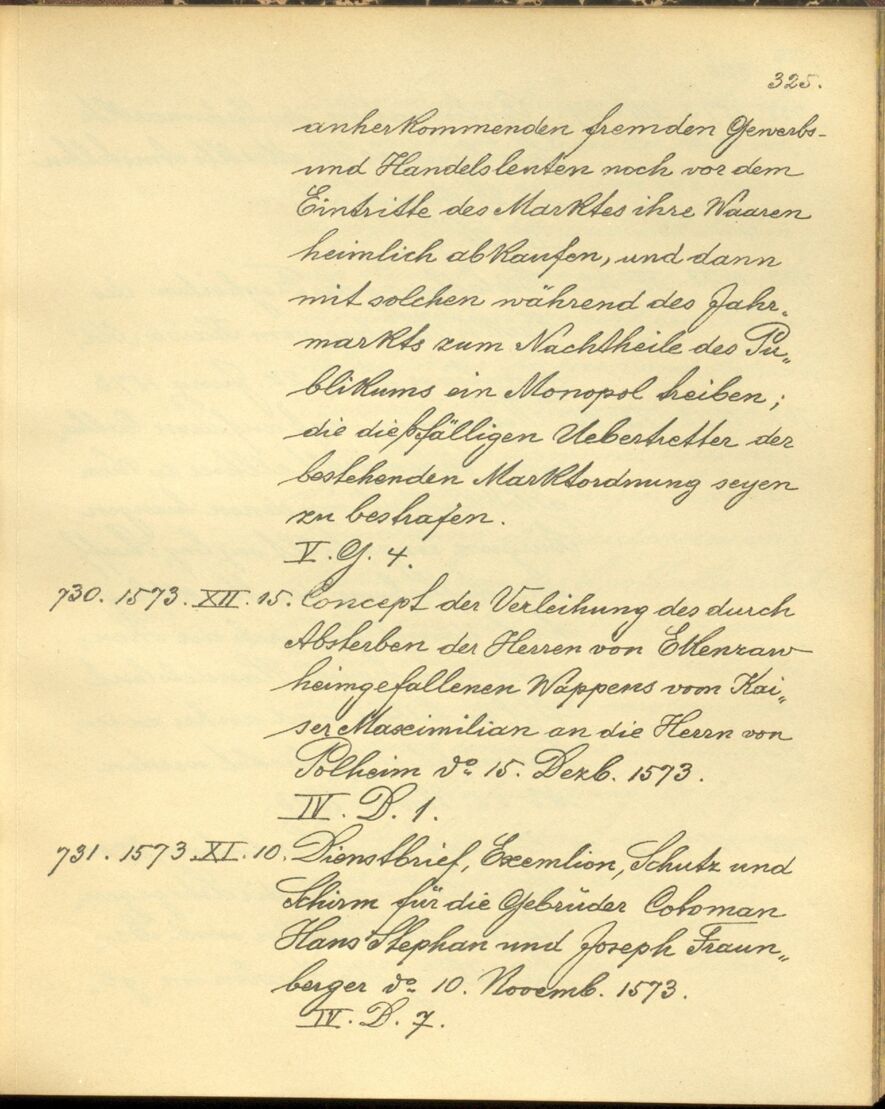 325.
anherkommenden fremden Gewerbs-
und Handelsleuten noch vor dem
Eintritte des Marktes ihre Waaren
heimlich abkaufen, und dann
mit solchen während des Jahr„
markts zum Nachtheile des Pu„
blikums ein Monopol treiben;
die dießfälligen Uebertretter der
bestehenden Marktordnung seyen
zu bestrafen.
V. G. 4.
730. 1573. XII. 15. Concept der Verleihung des durch
Absterben der Herren von Ellenraw
heimgefallenen Wappens vom Kai„
ser Maximilian an die Herrn von
Polheim do 15. Dezb. 1573.
IV. D. 1.
731. 1573. XI. 10. Dienstbrief, Exemtion, Schutz und
Schirm für die Gebrüder Coloman
Hans Stephan und Joseph Fraun„
berger do 10. Novemb. 1573.
IV. D. 7.